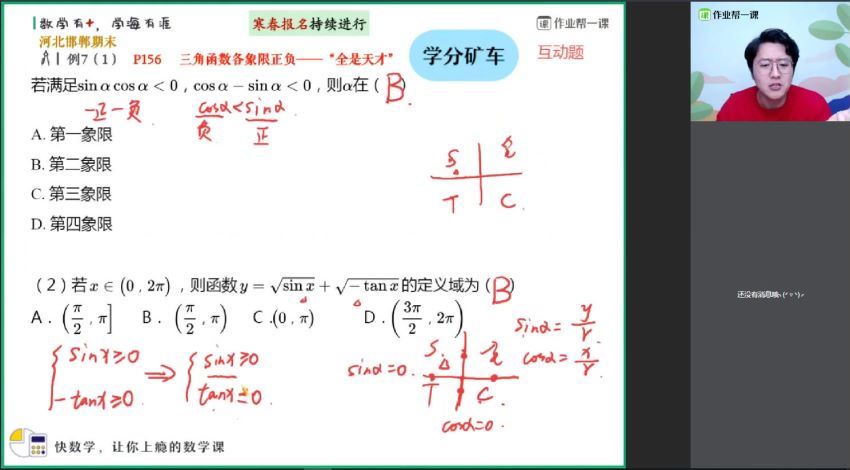 数学有+，学海有涯
寒春报名持续进行
作业帮一课
作业帮一课
河北邯郸期末
例7（1） P156 三角函数各象限正负——“全是天才”
学分矿车
互动题
若满足sin α cos α < 0，cos α − sin α < 0，则α在（B）
一正一负
cosα<sinα
负 正
A. 第一象限
B. 第二象限
C. 第三象限
D. 第四象限
S
T C
还没有消息哦~
（2）若x∈(0, 2π)，则函数y = √sin x + √−tan x的定义域为（B）
A. (π/2, π] B. (π/2, π) C.(0, π) D. (3π/2, 2π)
{ sinx≥0 ⇒ { sinx≥0
-tanx≥0 tanx≤0
sinα=0
S
T C
cosα=0
sinα= y/r
cosα= x/r
快数学，让你上瘾的数学课